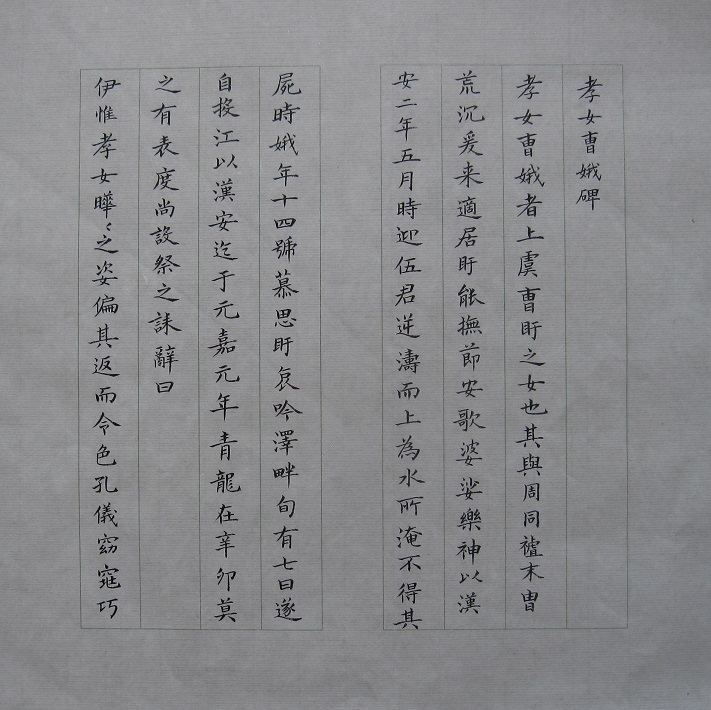 孝女曹娥碑
孝女曹娥者上虞曹盱之女也其與周同祖末冑
荒沉爰来適居盱能撫節安歌婆娑樂神以漢
安二年五月時迎伍君逆濤而上為水所淹不得其
屍時娥年十四號慕思盱哀吟澤畔旬有七日遂
自投江以漢安迄于元嘉元年青龍在辛卯莫
之有表度尚設祭之誄辭曰
伊惟孝女曄〻之姿偏其返而令色孔儀窈窕巧